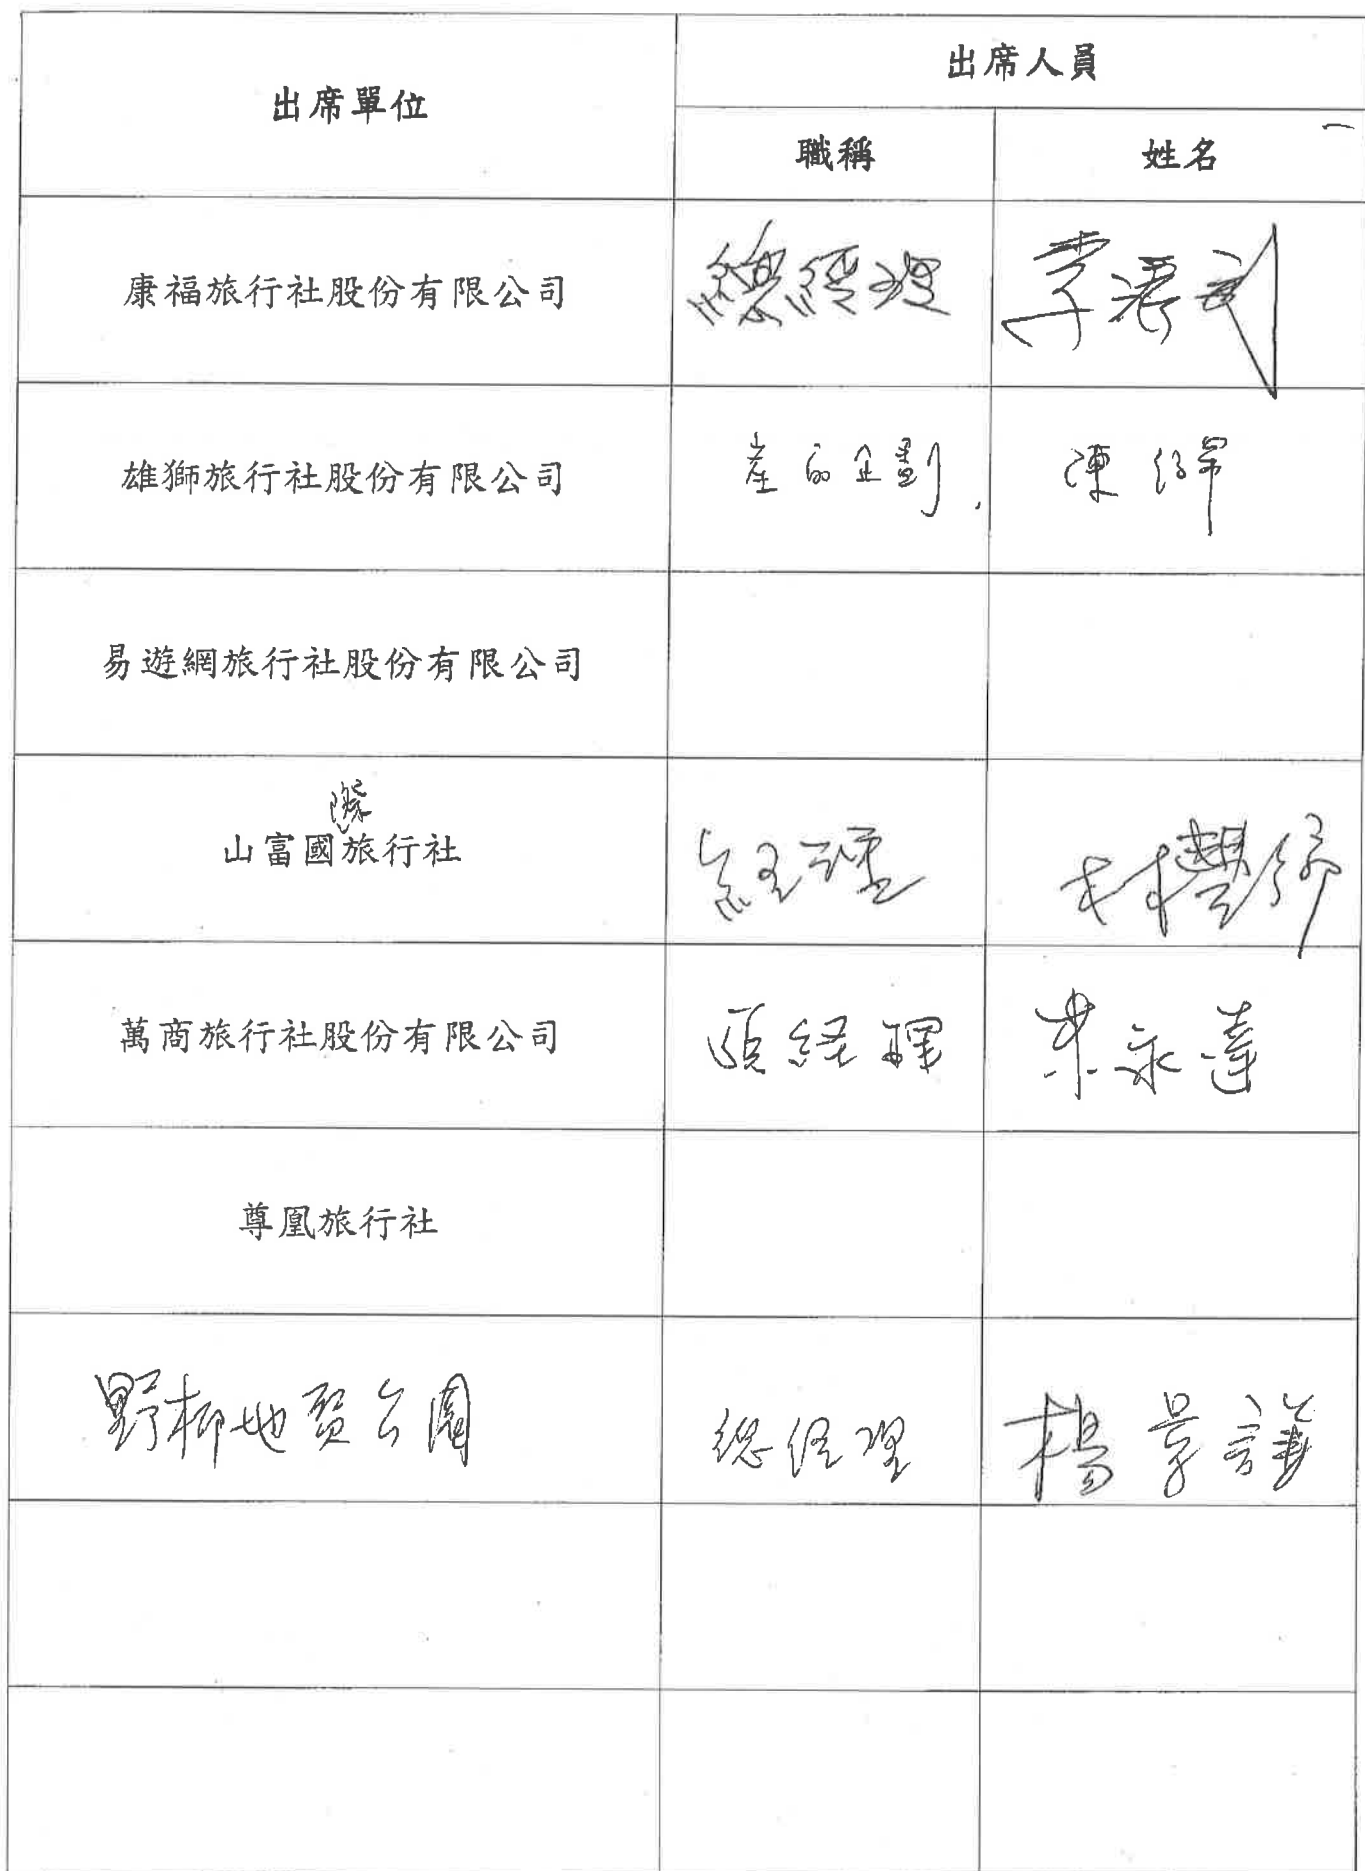 出席單位
出席人員
職稱
姓名
康福旅行社股份有限公司 總經理 李
雄獅旅行社股份有限公司 產品企劃 陳
易遊網旅行社股份有限公司
際
山富國旅行社 經理 林
萬商旅行社股份有限公司 經理 永達
尊凰旅行社
野柳地質公園 總經理 楊景謙